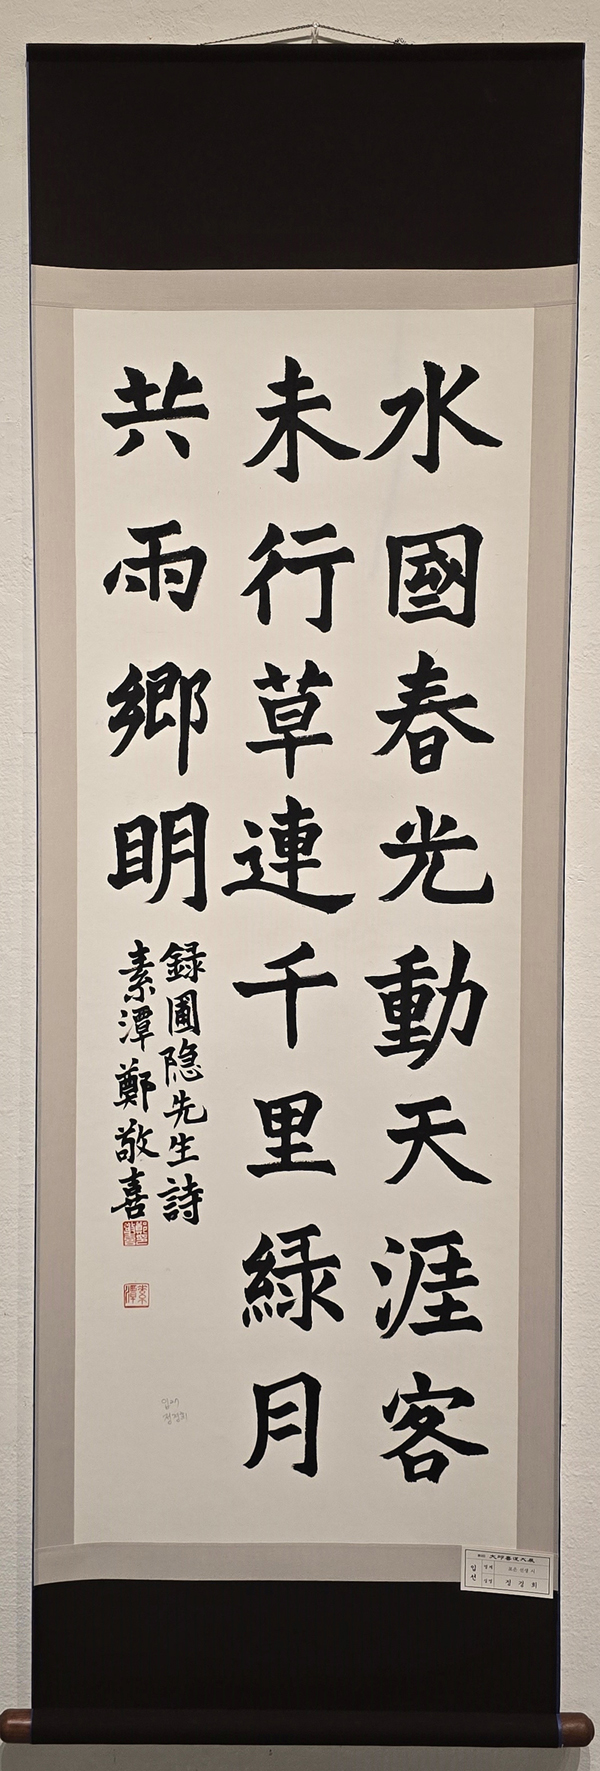 水國春光動天涯客
未行草連千里綠月
共兩鄉明
録圃隐先生詩
素潭鄭敬喜
素潭
정경희
입선
정경희